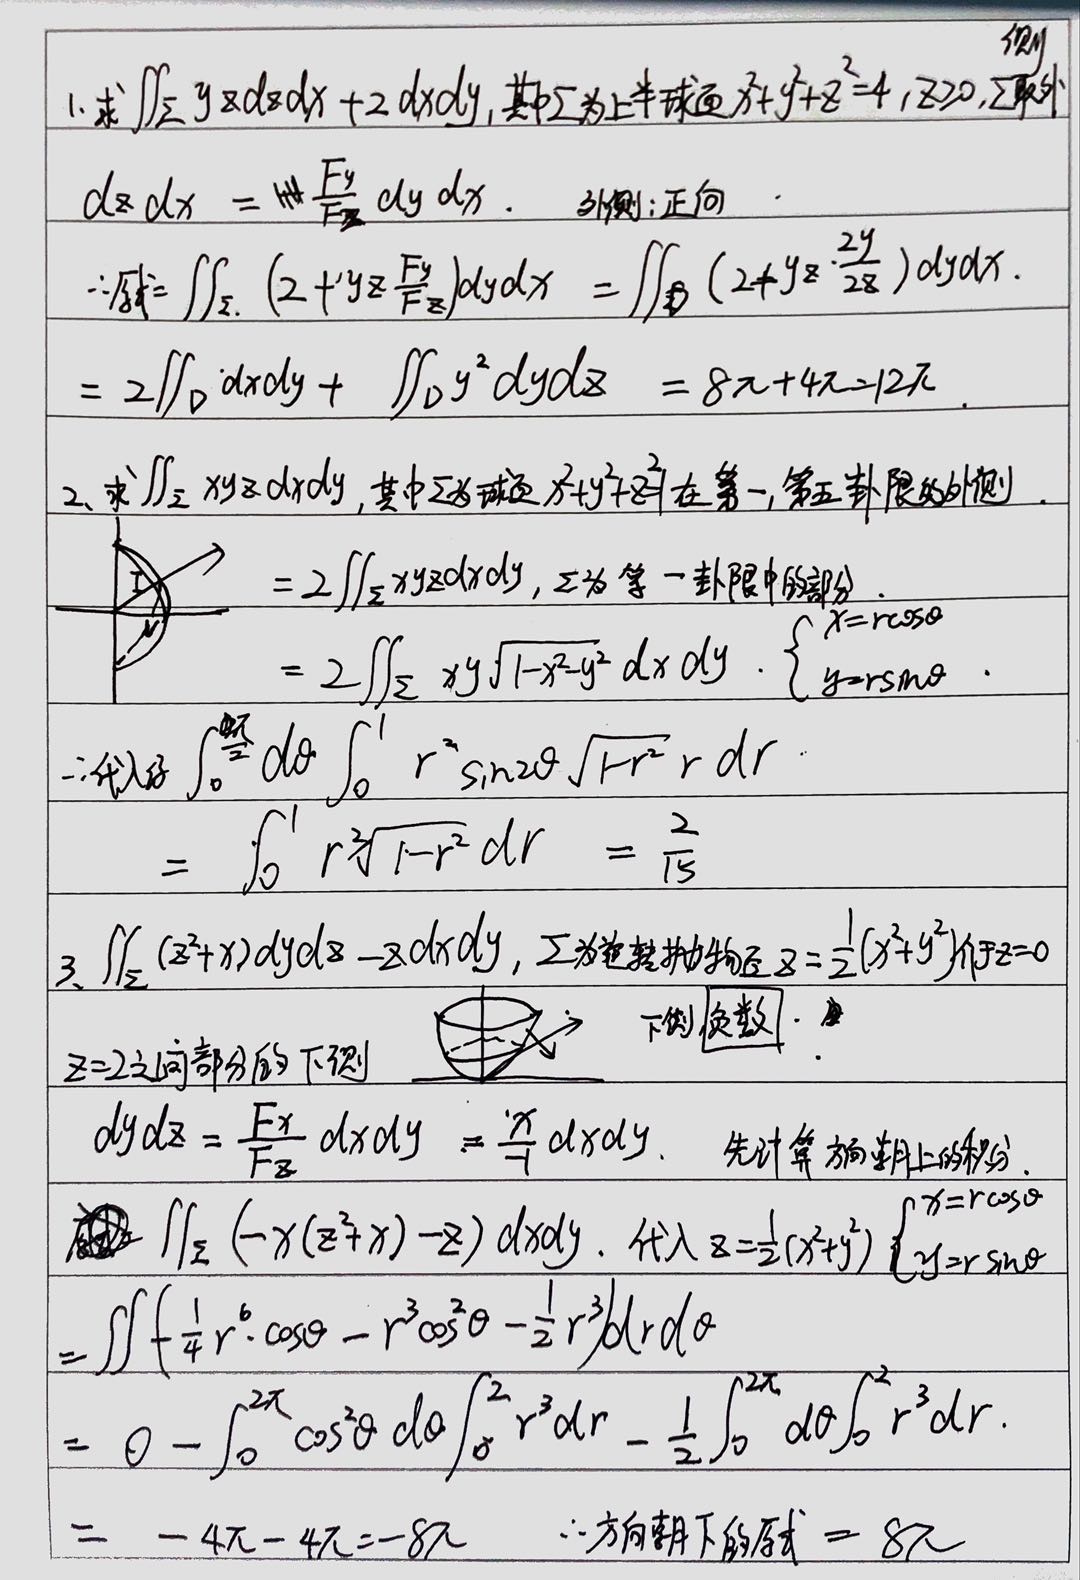 1. 求∬_Σ yzdzdx+2dxdy, 其中Σ为上半球面x²+y²+z²=4, z≥0, Σ取外侧
dzdx = Fy/Fz dydx. 外侧:正向
∴原式=∬_Σ (2+yz Fy/Fz)dydx = ∬_D (2+yz·2y/2z)dydx.
= 2∬_D dxdy + ∬_D y²dydz = 8π+4π=12π.
2、求∬_Σ xyzdxdy, 其中Σ为球面x²+y²+z²=1在第一,第五卦限的外侧.
I
= 2∬_Σ xyzdxdy, Σ为第一卦限中的部分.
= 2∬_Σ xy√(1-x²-y²) dxdy. { x=rcosθ y=rsinθ.
∴代入得 ∫₀^(π/2) dθ ∫₀¹ r² sin2θ √(1-r²) r dr.
= ∫₀¹ r³√(1-r²) dr = 2/15
3、∬_Σ (z²+x)dydz-zdxdy, Σ为旋转抛物面z=1/2(x²+y²)介于z=0
z=2之间部分的下侧 下侧 负数.
dydz = Fx/Fz dxdy = x/-1 dxdy. 先计算方向朝上的积分.
∬_Σ (-x(z²+x)-z)dxdy. 代入 z=1/2(x²+y²) { x=rcosθ y=rsinθ
= ∬(-1/4 r⁶·cosθ - r³cos²θ - 1/2 r³)drdθ
= 0 - ∫₀^2π cos²θ dθ ∫₀² r³dr - 1/2 ∫₀^2π dθ ∫₀² r³dr.
= -4π-4π=-8π ∴方向朝下的原式 = 8π